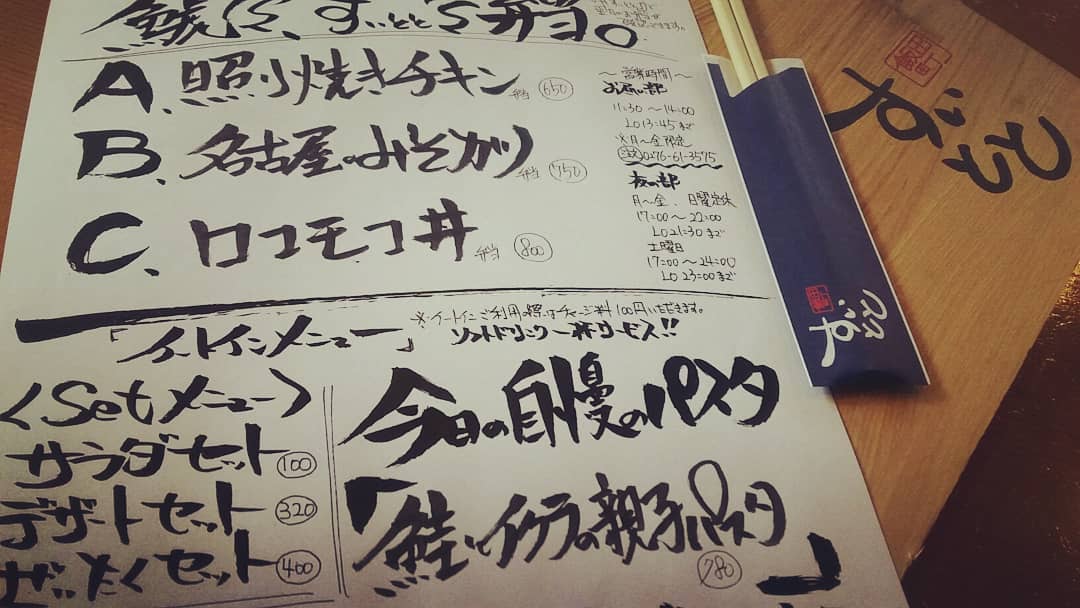 すいとと's 弁当。
A、照り焼きチキン 弁当 650
B、名古屋のみそカツ 弁当 750
C、ロコモコ丼 弁当 800
〜営業時間〜
お昼の部
11:30〜14:00
LO 13:45まで
※月〜金限定
0176-61-3575
夜の部
月〜金、日曜定休
17:00〜22:00
LO 21:30まで
土曜日
17:00〜24:00
LO 23:00まで
「イートインメニュー」
※イートインご利用の際はチャージ料100円いただきます。
ソフトドリンク一杯サービス!!
〈Setメニュー〉
サラダセット 100
デザートセット 320
ぜいたくセット 400
今日の自慢のパスタ
「鮭とイクラの親子パスタ」
780